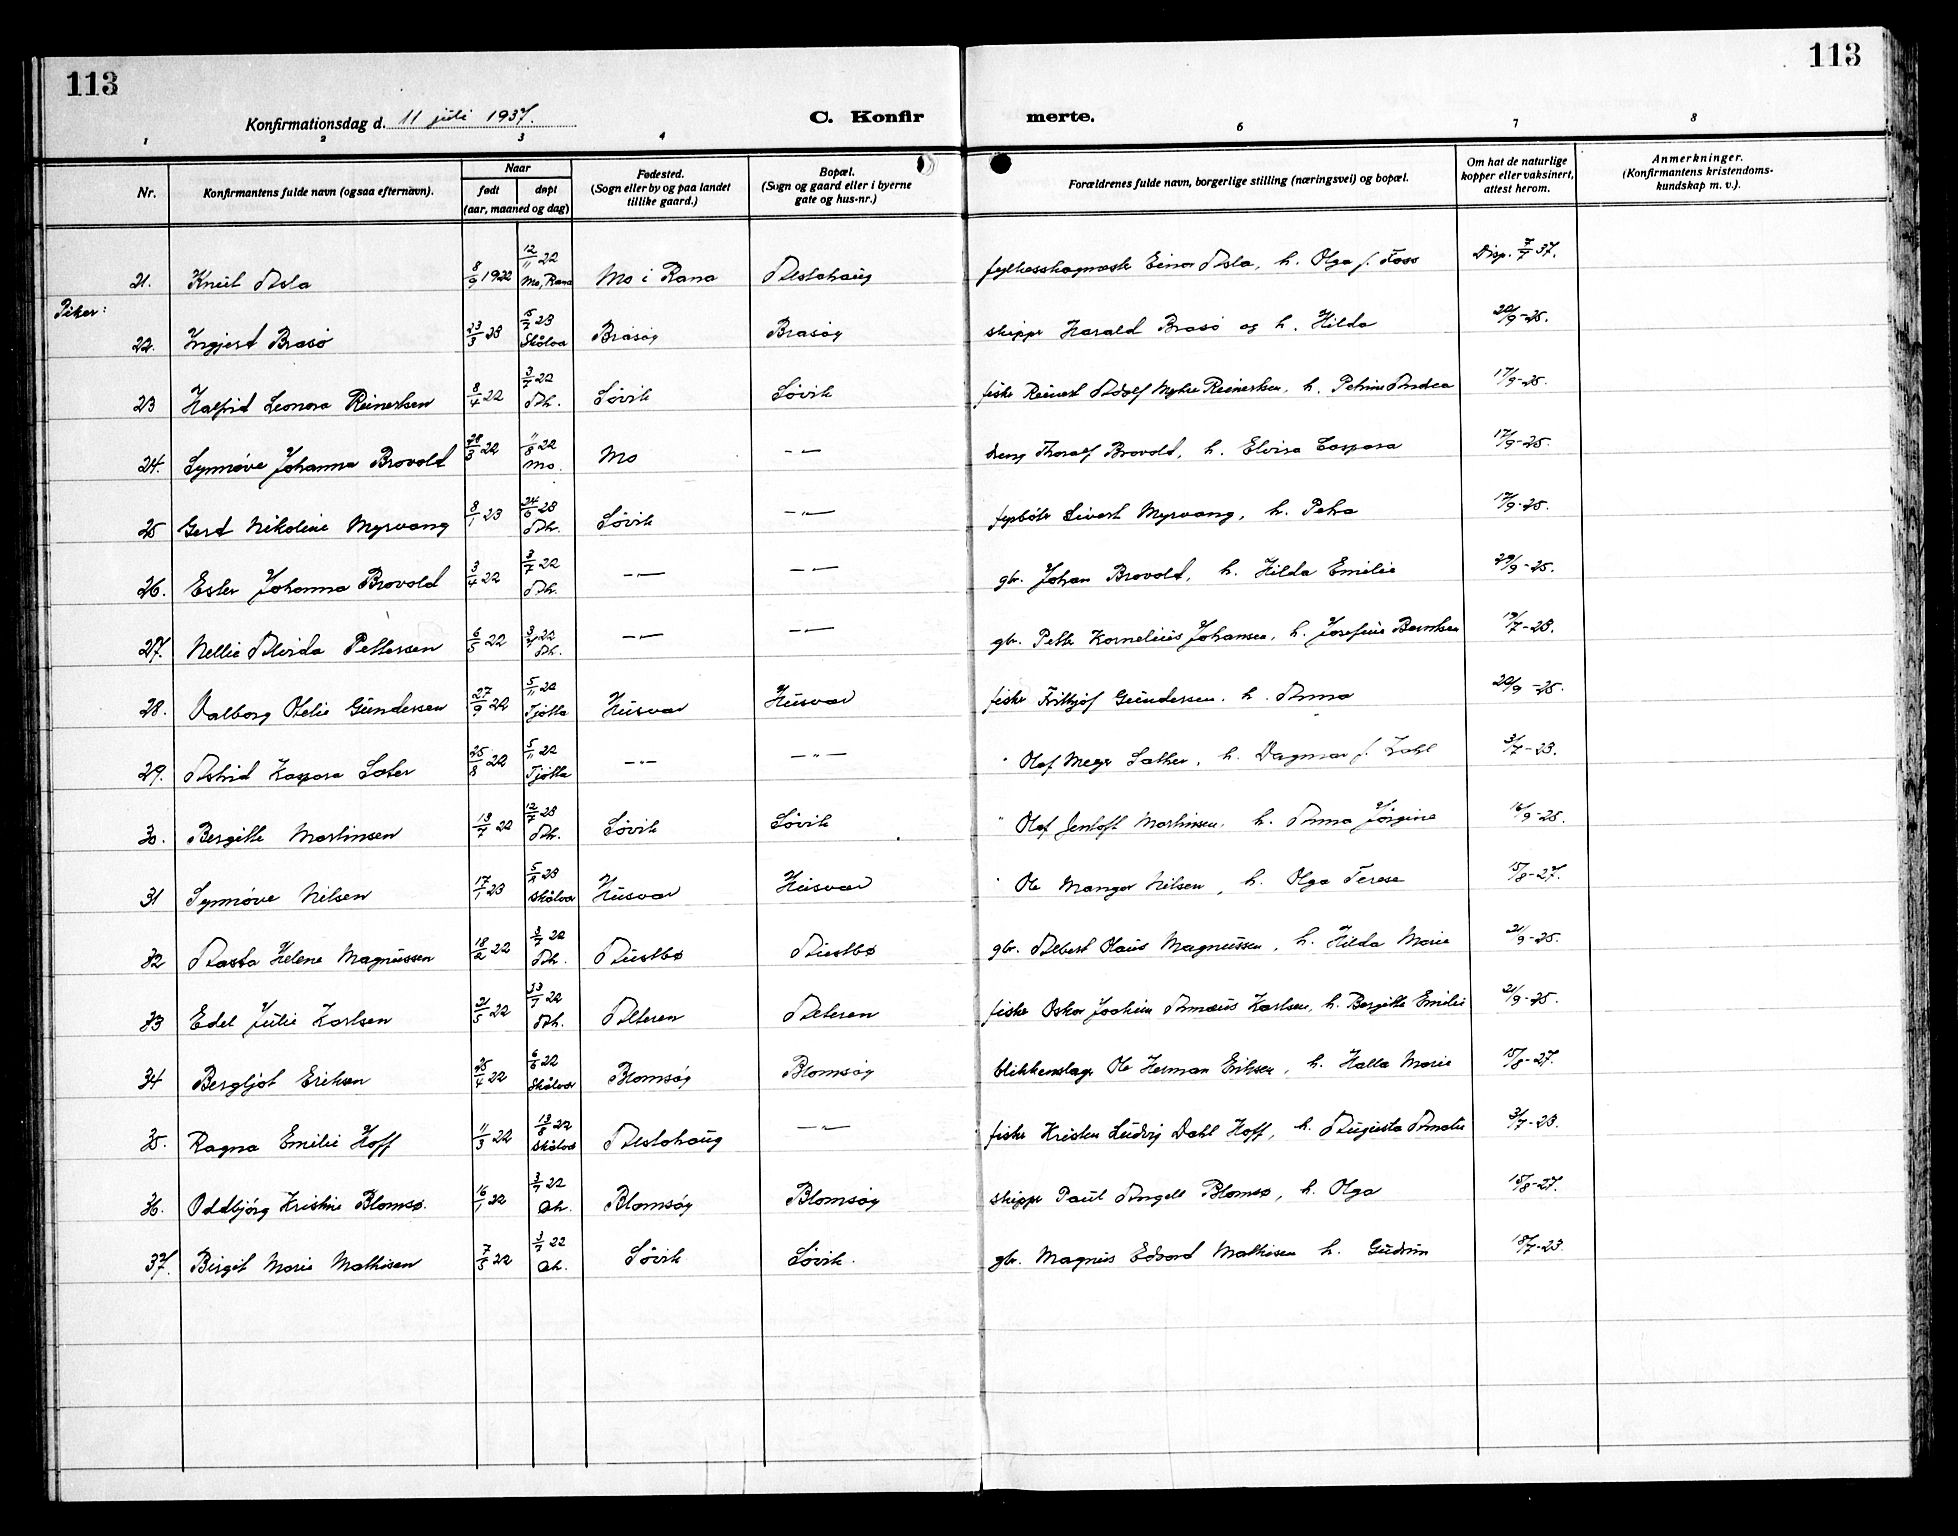 113
113
Konfirmationsdag d. 11 juli 1937.
C. Konfir
merte.
1 2 3 4 6 7 8
Nr. Konfirmantens fulde navn (ogsaa efternavn). Naar født døpt (aar, maaned og dag) Fødested. (Sogn eller by og paa landet tillike gaard.) Bopæl. (Sogn og gaard eller i byerne gate og hus-nr.) Forældrenes fulde navn, borgerlige stilling (næringsvei) og bopæl. Om hat de naturlige kopper eller vaksinert, attest herom. Anmerkninger. (Konfirmantens kristendomskundskap m. v.).
21. Knut Asla 8/9 1922 12/11 22 Mo, Rana Mo i Rana Alstahaug Einar Asla, h. Olga f. Foss Disp. 7/7 37.
Piker:
22. Ingjerd Brasø 23/3 23 15/7 23 Skålva Brasøy Brasøy skippr Harald Brasø og h. Hilda 20/9-25.
23 Halfrid Leonora Reinertsen 8/4 22 3/7 22 Ah. Søvik Søvik fiskr Reinert Adolf Reinertsen, h. Petrine Andea 17/9-25.
24. Synnøve Johanna Brovold 28/3 22 11/8 22 Mo. Mo -„- Thoralf Brovold, h. Elvira Caspara 17/9-25.
25 Gerd Nikoline Myrvang 8/1 23 24/6 23 Ah. Søvik -„- fyrbøtr Sivert Myrvang, h. Petra 17/9-25.
26. Ester Johanna Brovold 3/4 22 3/7 22 Ah. -„- -„- gbr. Johan Brovold, h. Hilda Emilie 29/9-25.
27. Nellie Alvida Pettersen 6/5 22 3/7 22 Ah. -„- -„- gbr. Petter Kornelius Johansen, h. Josefine Berntsen 19/7-23.
28. Valborg Otelie Gundersen 27/9 22 5/11 22 Tjøtta Husvær Husvær fiskr Fritkjof Gundersen. h. Anna 20/9-25.
29. Astrid Kaspara Sæter 25/8 22 5/11 22 Tjøtta -„- -„- " Olaf Meyer Sæther, h. Dagmar f. Zahl 3/7-23.
30. Bergitte Martinsen 13/7 22 12/7 23 Ah. Søvik Søvik " Olaf Jentoft Martinsen. h. Anna Jörgine 16/9-25.
31 Synnøve Nilsen 17/1 23 23 Skålvær Husvær Husvær " Ole Mangor Nilsen, h. Olga Terese 15/8-27.
32 Aasta Helene Magnussen 18/2 22 3/7 22 Ah. Austbø Austbø gbr. Albert Olaus Magnussen, h. Hilda Marie 21/9-25.
33 Edel Julie Karlsen 21/5 22 22 Ah. Alteren Alteren fiskr Oskar Joakim Karlsen, h. Bergitte Emilie 21/9-25.
34 Bergljot Eriksen 25/4 22 6/8 22 Skålvær Blomsøy Blomsøy blikkenslagr Ole Herman Eriksen, h. Halla Marie 15/8-27.
35. Ragna Emilie Hoff 11/3 22 13/8 22 Skålvær Alstahaug -„- fiskr Kristen Ludvig Dahl Hoff, h. Augusta Amalie 3/7-23.
36. Oddbjörg Kristine Blomsø. 16/1 22 3/7 22 Ah. Blomsøy Blomsøy skippr Paul Angell Blomsø, h. Olga 15/8-27.
37. Birgit Marie Mathisen 7/5 22 3/7 22 Ah. Søvik Søvik. gbr. Magnus Edvard Mathisen h. Gudrun 18/7-23.